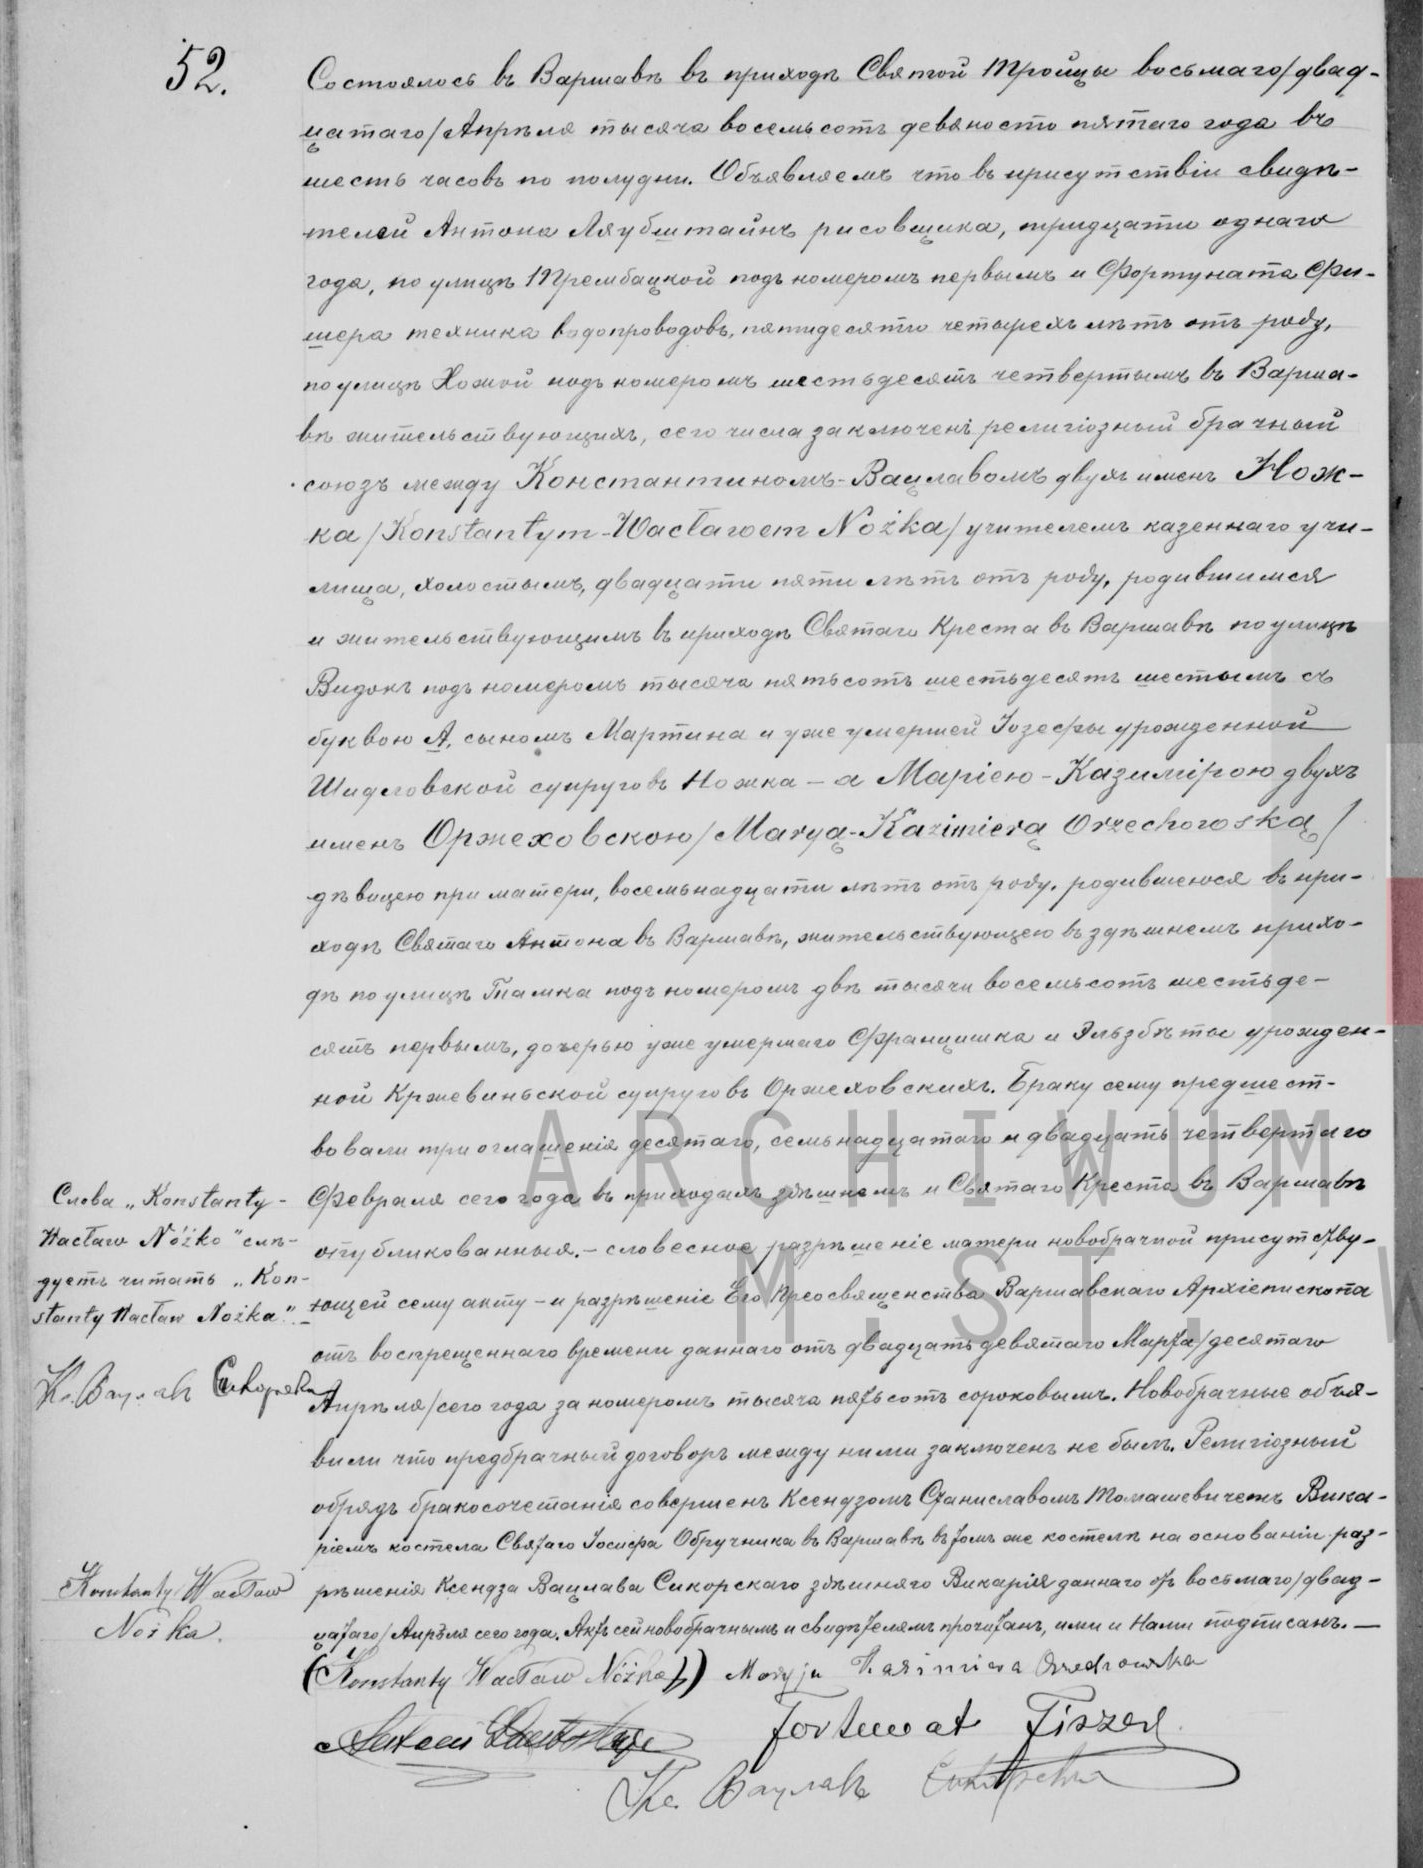 52.
Состоялось въ Варшавѣ въ приходѣ Святой Тройцы восьмаго/двад-
цатаго/Апрѣля тысяча восемьсотъ девяносто пятаго года въ
шесть часовъ по полудни. Объявляемъ что въ присутствіи свидѣ-
телей Антона Ляубштайнъ рисовщика, тридцати однаго
года, по улицѣ Трембацкой подъ номеромъ первымъ и Фортуната Фи-
шера техника водопроводовъ, пятидесяти четырехъ лѣтъ отъ роду,
по улицѣ Хожой подъ номеромъ шестьдесятъ четвертымъ въ Варша-
вѣ жительствующихъ, сего числа заключенъ религіозный брачный
союзъ между Константиномъ-Вацлавомъ двухъ именъ Нож-
ка/Konstantym-Wacławem Nożka/учителемъ казеннаго учи-
лища, холостымъ, двадцати пяти лѣтъ отъ роду, родившимся
и жительствующимъ въ приходѣ Святаго Креста въ Варшавѣ по улицѣ
Видокъ подъ номеромъ тысяча пятьсотъ шестьдесятъ шестымъ съ
буквою А, сыномъ Мартина и уже умершей Іозефы урожденной
Шидловской супруговъ Ножка – а Маріею-Казимірою двухъ
именъ Оржеховскою/Maryą-Kazimierą Orzechowską/
дѣвицею при матери, восемьнадцати лѣтъ отъ роду, родившеюся въ при-
ходѣ Святаго Антона въ Варшавѣ, жительствующею въ здѣшнемъ прихо-
дѣ по улицѣ Тамка подъ номеромъ двѣ тысячи восемьсотъ шестьде-
сятъ первымъ, дочерью уже умершаго Францишка и Эльзбѣты урожден-
ной Кржевиньской супруговъ Оржеховскихъ. Браку сему предшест-
вовали три оглашенія десятаго, семьнадцатаго и двадцать четвертаго
Февраля сего года въ приходахъ здѣшнемъ и Святаго Креста въ Варшавѣ
опубликованныя. – словесное разрѣшеніе матери новобрачной присутству-
ющей сему акту – и разрѣшеніе Его Преосвященства Варшавскаго Архіепископа
отъ воспрещеннаго времени даннаго отъ двадцать девятаго Марта/десятаго
Апрѣля/сего года за номеромъ тысяча пятьсотъ сороковымъ. Новобрачные объя-
вили что предбрачный договоръ между ними заключенъ не былъ. Религіозный
обрядъ бракосочетанія совершенъ Ксендзомъ Станиславомъ Томашевичемъ Вика-
ріемъ костела Святаго Іосифа Обручника въ Варшавѣ въ томъ же костелѣ на основаніи раз-
рѣшенія Ксендза Вацлава Сикорскаго здѣшняго Викарія даннаго отъ восьмаго/двад-
цатаго/Апрѣля сего года. Актъ сей новобрачнымъ и свидѣтелямъ прочитанъ, ими и Нами подписанъ. —
(Konstanty Wacław Nóżka) Maryja Kazimiera Orzechowska
Antoni Fortunat Fiszer
Кс. Вацлавъ Сикорскій
Слова „Konstanty-
Wacław Nóżko" слѣ-
дуетъ читать „Kon-
stanty Wacław Nożka".–
Кс. Вацлавъ Сикорскій
Konstanty Wacław
Nożka.
ARCHIWUM
M. ST. W